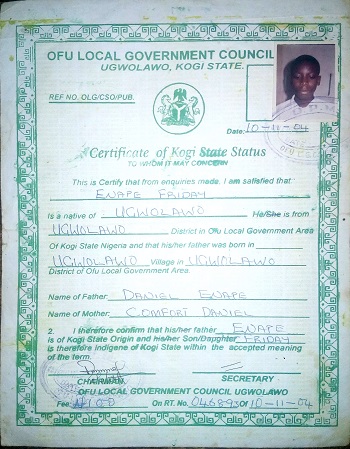 OFU LOCAL GOVERNMENT COUNCIL
UGWOLAWO, KOGI STATE.
REF NO. OLG/CSO/PUB.
Date: 10-11-04
Certificate of Kogi State Status
TO WHOM IT MAY CONCERN
This is Certify that from enquiries made. I am satisfied that
ENAPE FRIDAY
Is a native of UGWOLAWO He/She is from
UGWOLAWO District in Ofu Local Government Area
Of Kogi State Nigeria and that his/her father was born in
UGWOLAWO Village in UGWOLAWO
District of Ofu Local Government Area.
Name of Father: DANIEL ENAPE
Name of Mother: COMFORT DANIEL
2. I therefore confirm that his/her father ENAPE
is of Kogi State Origin and his/her Son/Daughter FRIDAY
is therefore indigene of Kogi State within the accepted meaning
of the term.
CHAIRMAN SECRETARY
OFU LOCAL GOVERNMENT COUNCIL UGWOLAWO
Fee: ₦100 On RT. No. 046893 Of 10-11-04